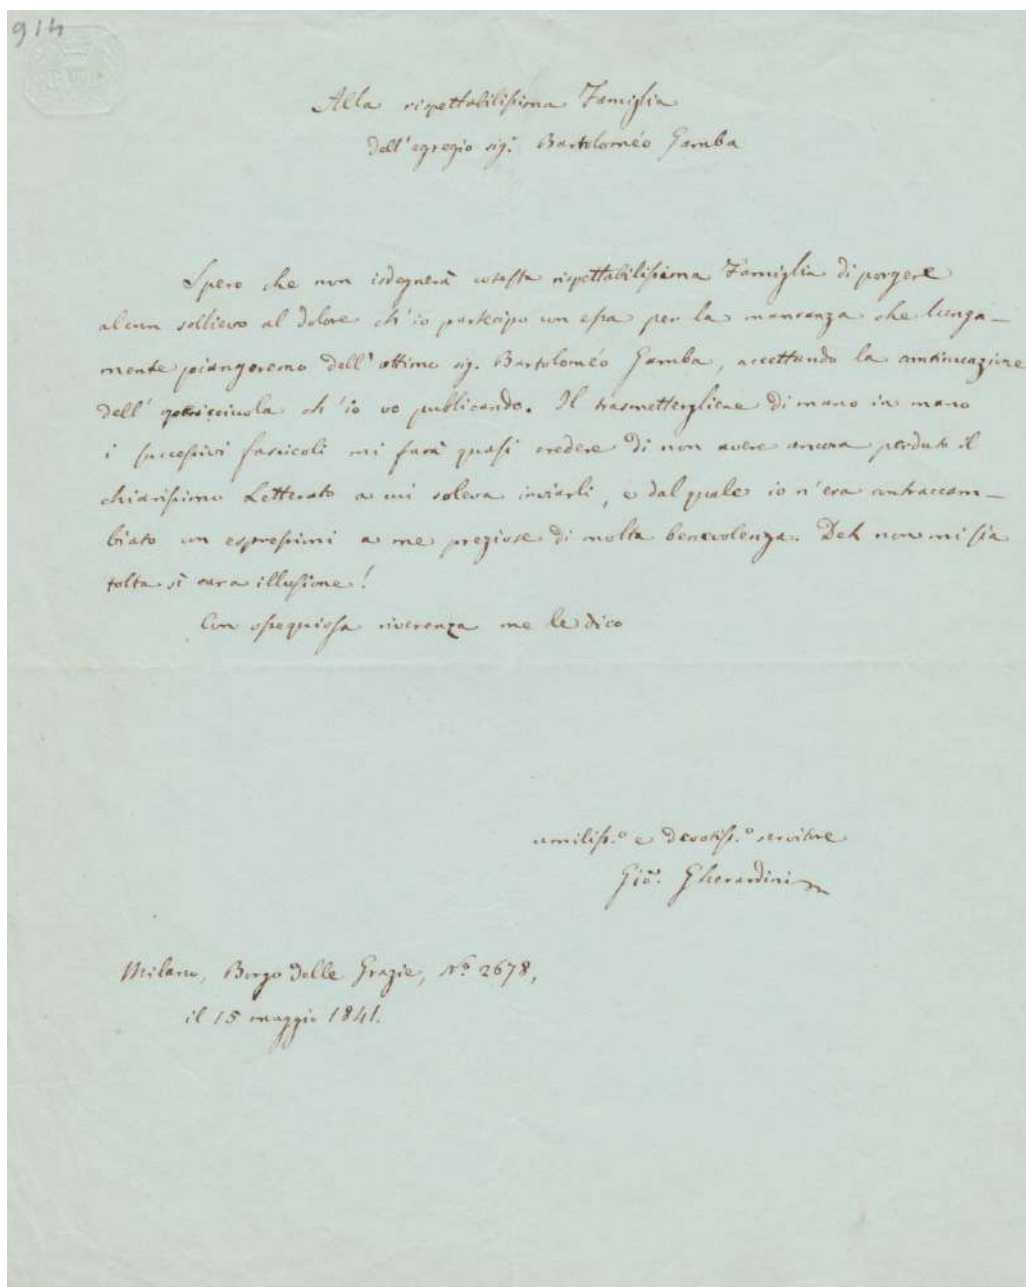 914
Alla rispettabilissima Famiglia
dell'egregio sig.r Bartoloméo Gamba
Spero che non isdegnerà cotesta rispettabilissima Famiglia di porgere
alcun sollievo al dolore ch'io partecipo con essa per la mancanza che lunga-
mente piangeremo dell'ottimo sig. Bartoloméo Gamba, accettando la continuazione
dell' ch'io vo publicando. Il trasmettergliene di mano in mano
i successivi fascicoli mi farà quasi credere di non avere ancora perduto il
chiarissimo Letterato a cui soleva inviarli, e dal quale io n'era contraccam-
biato con espressioni a me preziose di molta benevolenza. Deh non mi sia
tolta sì cara illusione!
Con ossequiosa riverenza me le dico
umiliss.o e devotiss.o servitore
Gio. Gherardini
Milano, Borgo delle Grazie, No. 2678,
il 15 maggio 1841.